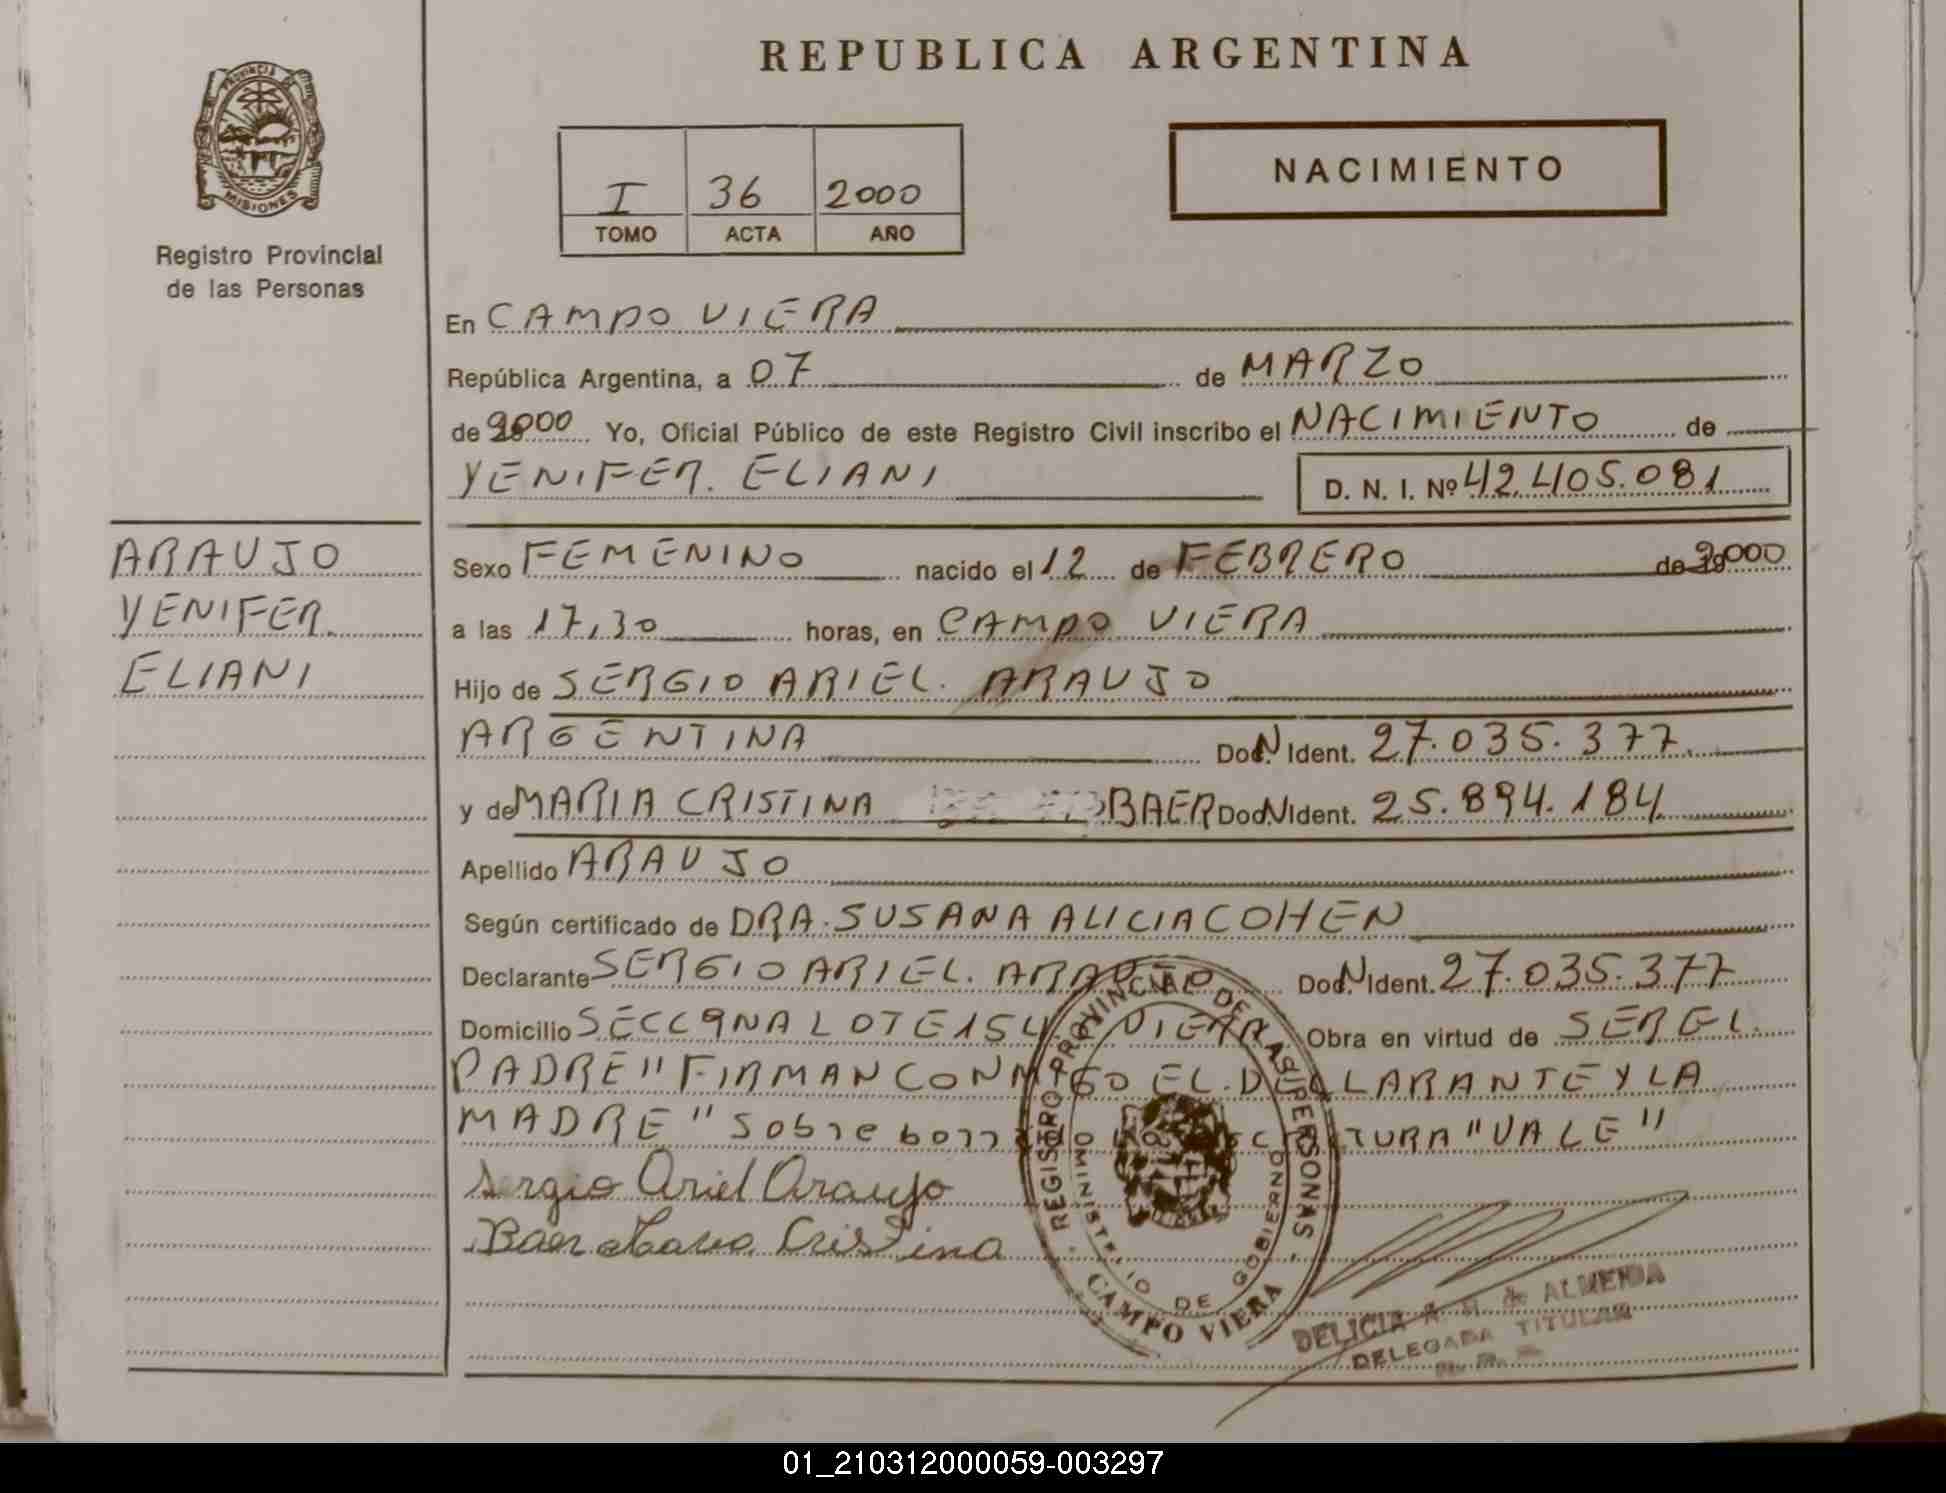 REPUBLICA ARGENTINA
PROVINCIA DE MISIONES
Registro Provincial
de las Personas
I 36 2000
TOMO ACTA AÑO
NACIMIENTO
En CAMPO VIERA
República Argentina, a 07 de MARZO
de 2000 Yo, Oficial Público de este Registro Civil inscribo el NACIMIENTO de
YENIFER. ELIANI D. N. I. Nº 42.405.081
ARAUJO
YENIFER.
ELIANI
Sexo FEMENINO nacido el 12 de FEBRERO de 2000
a las 17,30 horas, en CAMPO VIERA
Hijo de SERGIO ARIEL. ARAUJO
ARGENTINA Doc. N Ident. 27.035.377
y de MARIA CRISTINA BAER Doc. N Ident. 25.894.184
Apellido ARAUJO
Según certificado de DRA. SUSANA ALICIA COHEN
Declarante SERGIO ARIEL. ARAUJO Doc. N Ident. 27.035.377
Domicilio SECC 9NA LOTE 154 VIERA Obra en virtud de SER EL
PADRE" FIRMAN CONMIGO EL. DECLARANTE Y LA
MADRE" Sobre borrado ESCRITURA "VALE"
Sergio Ariel Araujo
Baer Maria Cristina
REGISTRO PROVINCIAL DE LAS PERSONAS
MINISTERIO DE GOBIERNO
CAMPO VIERA
DELICIA R. de ALMEIDA
DELEGADA TITULAR
01_210312000059-003297